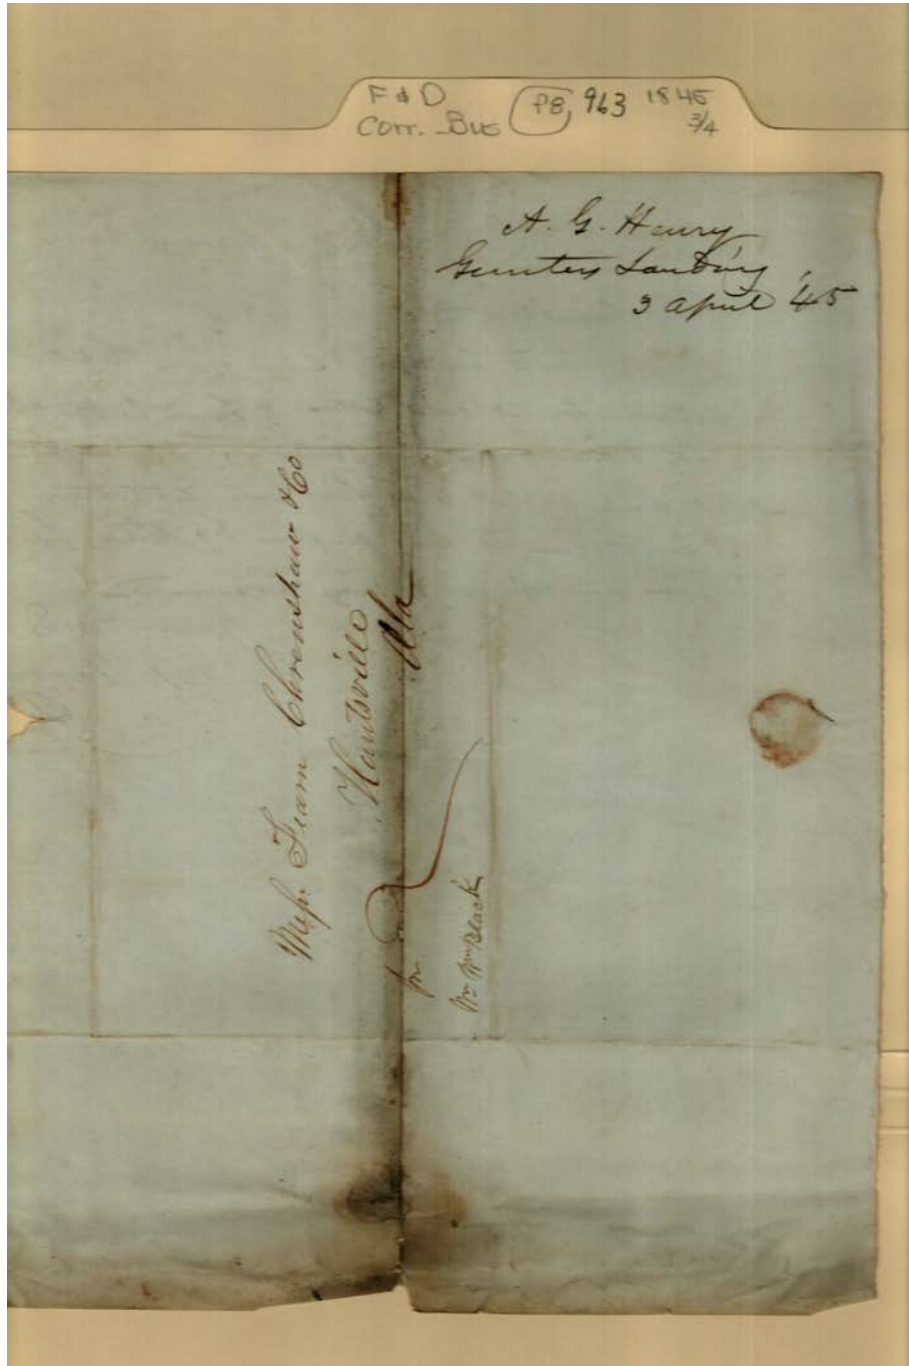 F & D
Corr. - Bus
P8, 963 1845
3/4
A. G. Henry
Gunters Landing
3 april '45
Messrs. Fearn Chrenshaw & Co
Huntsville
Ala
Mr Wm Black